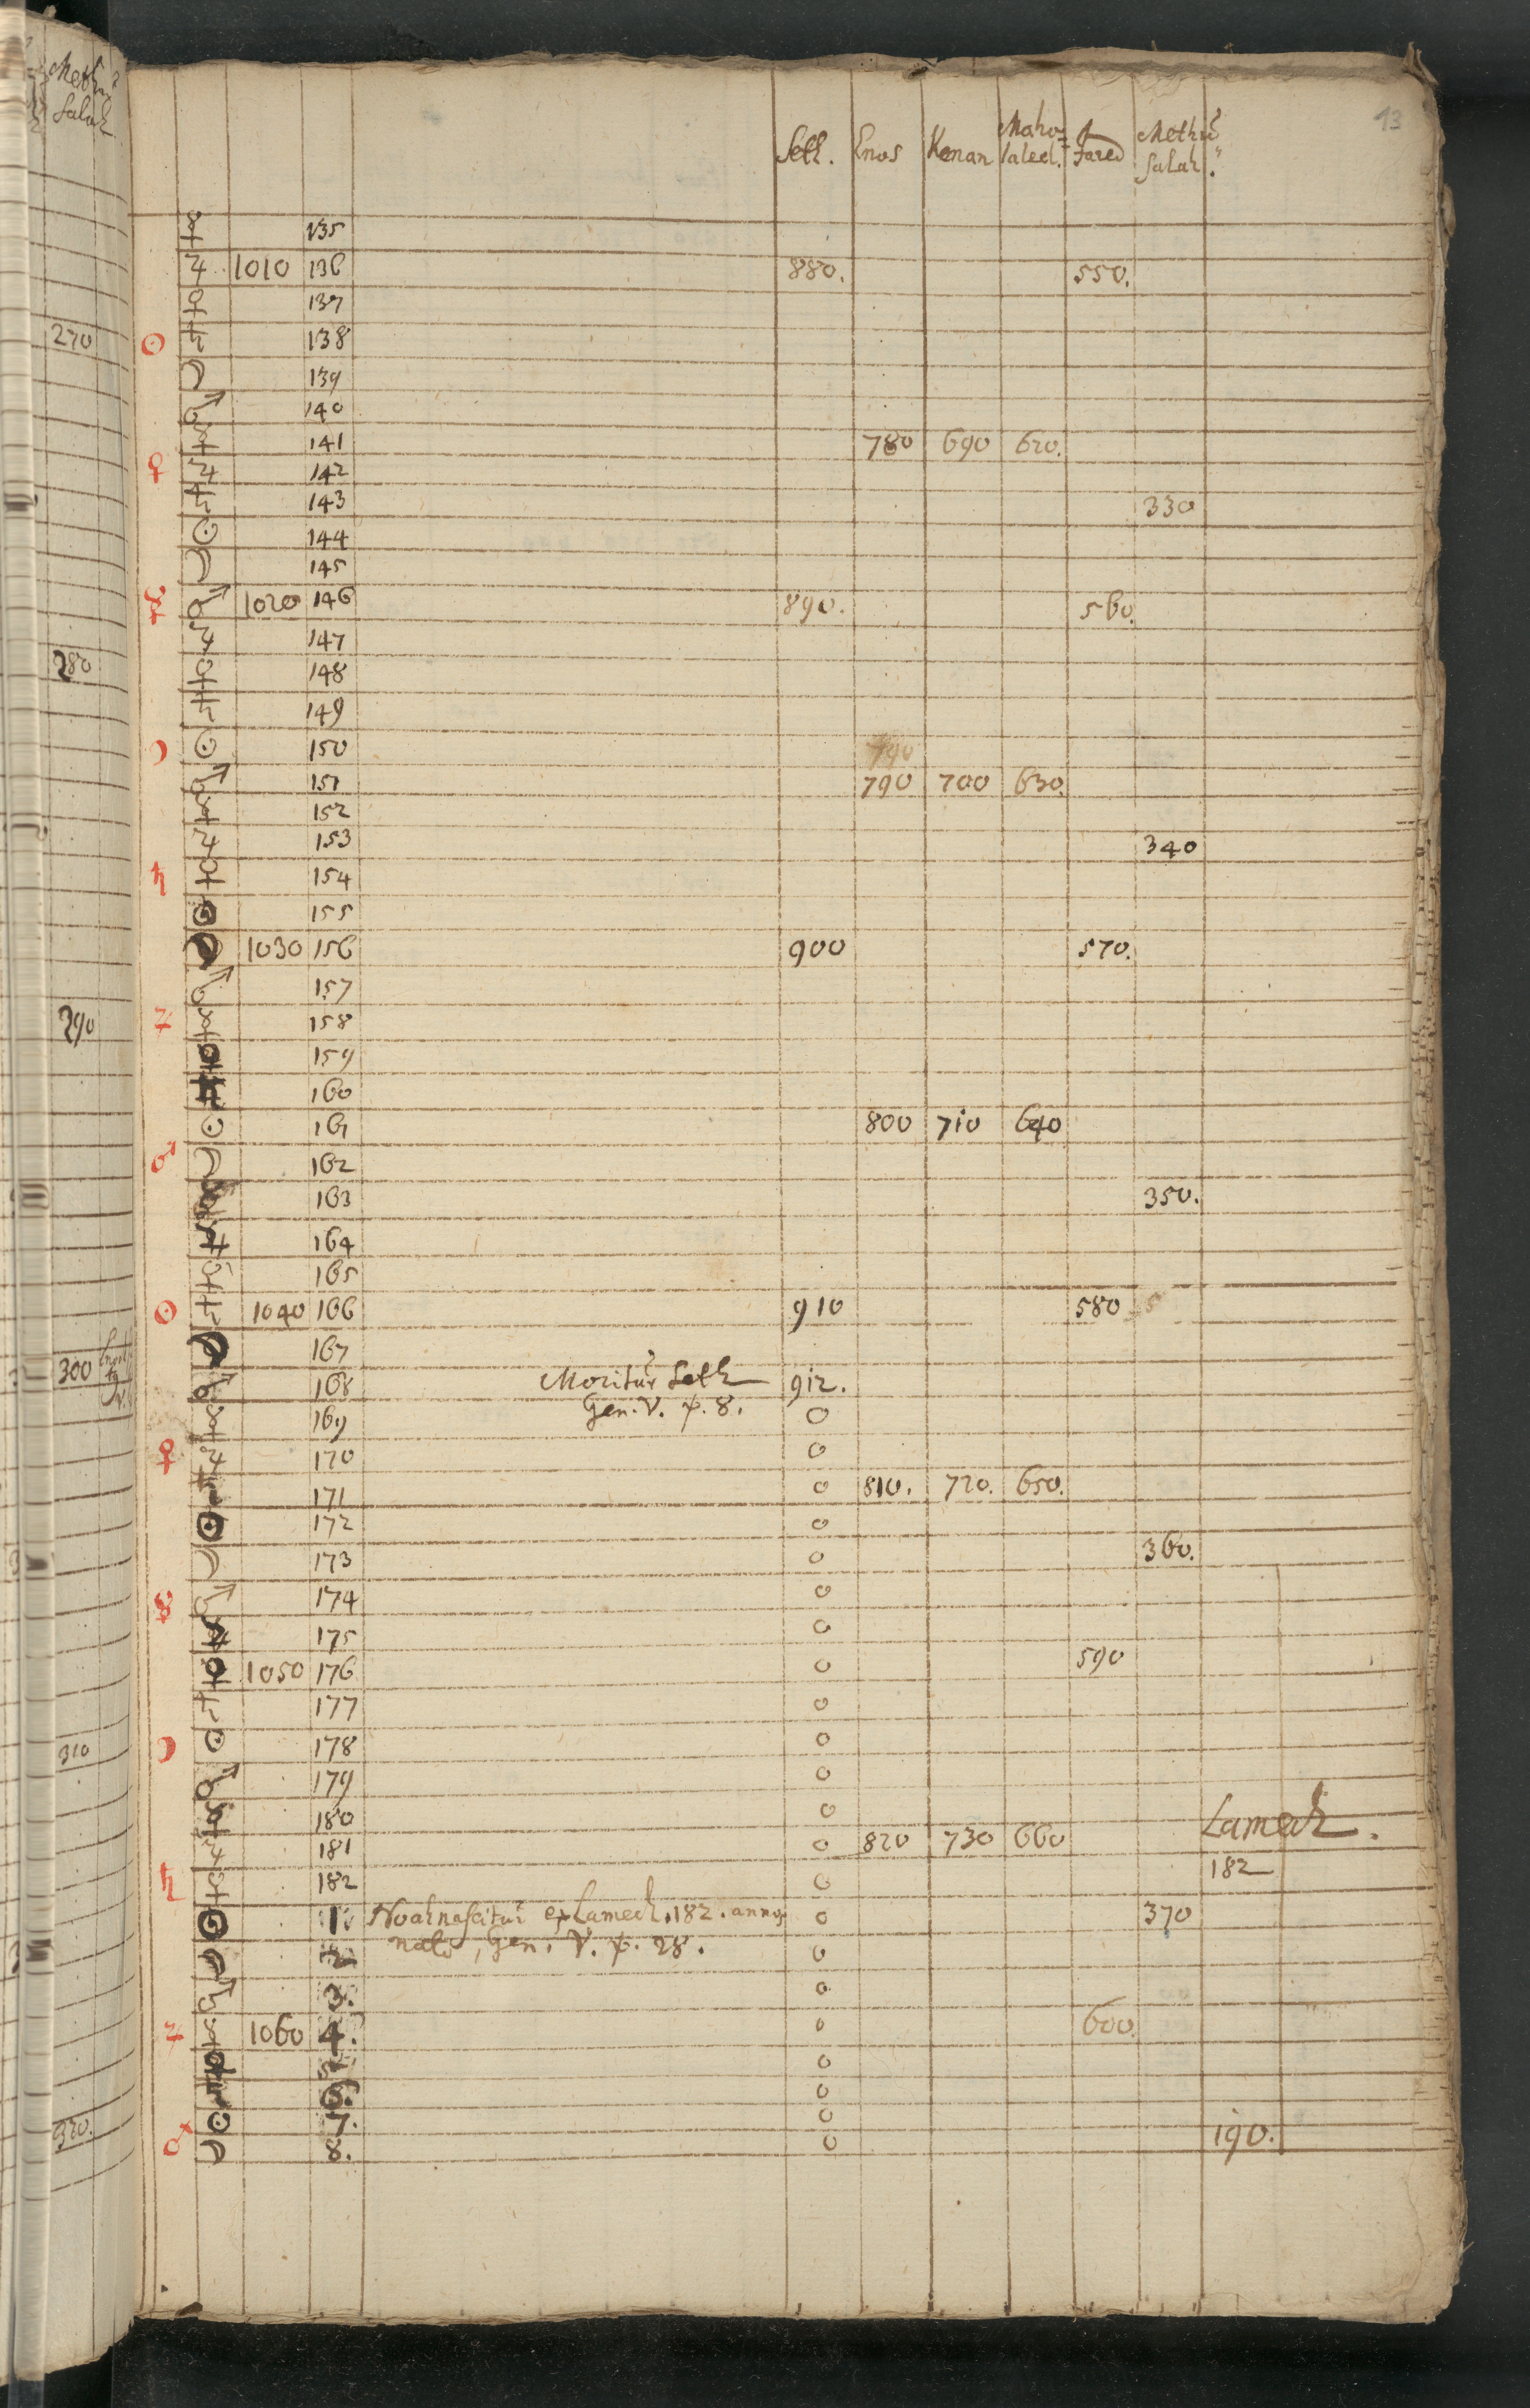 Meth
Salah
270
280
290
300
310
320.
13
Seth. Enos Kenan Maha= Jared Methu
laleel. Salah.
☿ 135
♃ 1010 136 880. 550.
♀ 137
☉ ♄ 138
☽ 139
♂ 140
☿ 141 780 690 620.
♀ ♃ 142
♄ 143 330
☉ 144
☽ 145
☿ ♂ 1020 146 890. 560.
♃ 147
♀ 148
♄ 149
☽ ☉ 150 790
♂ 151 790 700 630.
☿ 152
♃ 153 340
♄ ♀ 154
☉ 155
☽ 1030 156 900 570.
♂ 157
♃ ☿ 158
♀ 159
♄ 160
☉ 161 800 710 640
♂ ☽ 162
163 350.
♃ 164
♀ 165
☉ ♄ 1040 166 910 580
☽ 167
♂ 168 Moritur Seth 912.
☿ 169 Gen. V. ℣. 8. 0
♀ ♃ 170 0
♄ 171 0 810. 720. 650.
☉ 172 0
☽ 173 0 360.
☿ ♂ 174 0
175 0
♀ 1050 176 0 590
♄ 177 0
☽ ☉ 178 0
♂ 179 0
☿ 180 0 Lamech.
♃ 181 0 820 730 660
♄ ♀ 182 0 182
☉ 1 Noah nascitur ex Lamech. 182. annos 0 370
☽ 2 nato, Gen. V. ℣. 28. 0
♂ 3. 0
♃ ☿ 1060 4. 0 600.
♀ 5 0
♄ 6. 0
☉ 7. 0
♂ ☽ 8. 0 190.